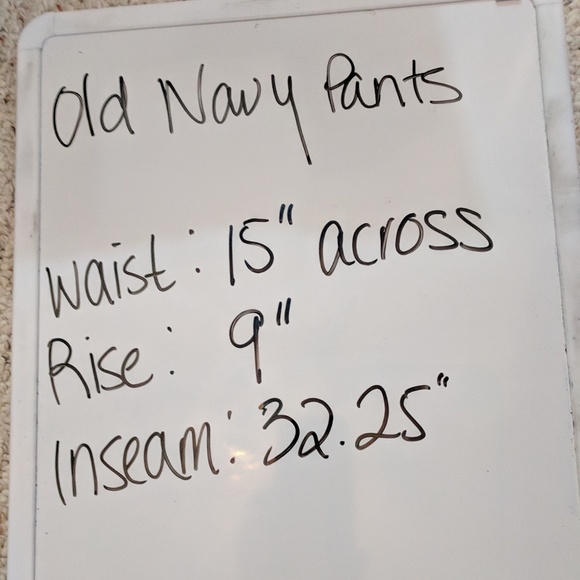 Old Navy Pants
Waist: 15" across
Rise: 9"
Inseam: 32.25"